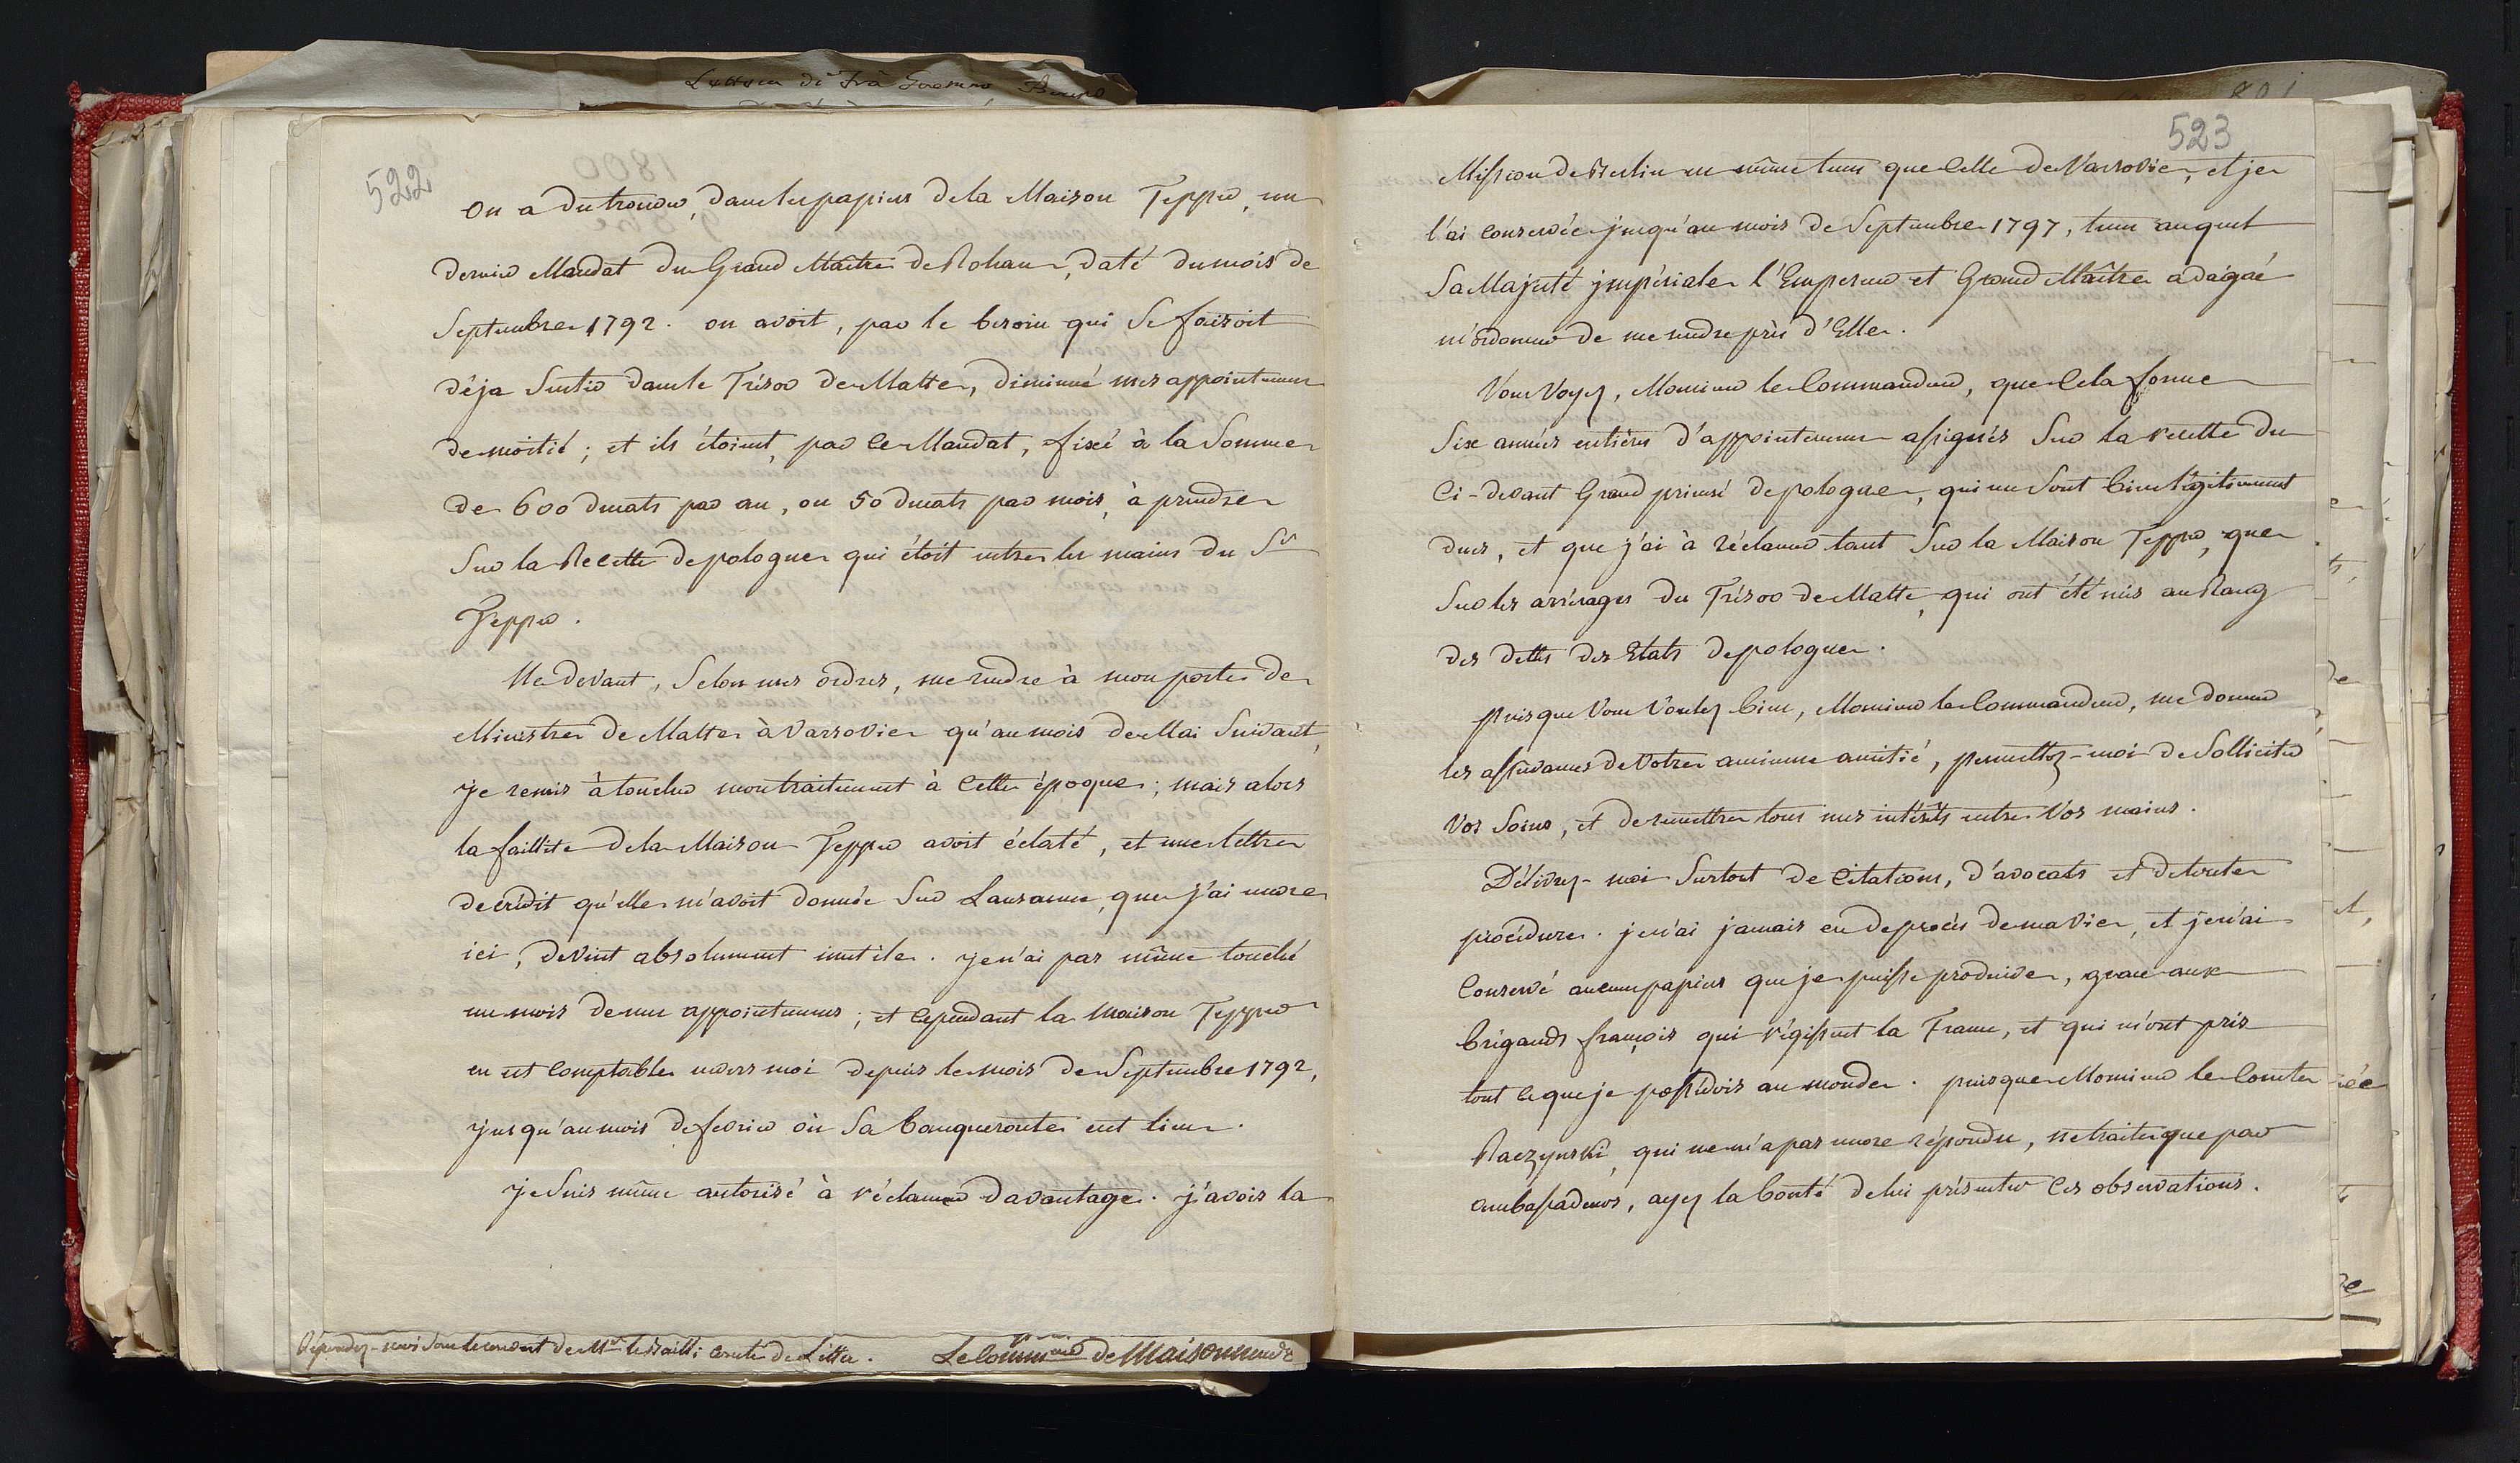 522
on a du trouver, dans les papiers de la Maison Tepper, un
dernier Mandat du Grand Maître de Rohan, daté du mois de
Septembre 1792. on avoit, par le besoin qui se faisoit
déja sentir dans le Trésor de Malte, diminué mes appointemens
de moitié; et ils étoient, par ce Mandat, fixé à la Somme
de 600 ducats par an, ou 50 ducats par mois, à prendre
sur la Recette de pologne qui étoit entre les mains du Sr
Tepper.
Ne devant, selon mes ordres, me rendre à mon poste de
Ministre de Malte à Varsovie qu'au mois de Mai suivant,
je remis à toucher mon traitement à cette époque; mais alors
la faillite de la Maison Tepper avoit éclaté, et une lettre
de crédit qu'elle m'avoit donnée sur Lausanne, que j'ai encore
ici, devint absolument inutile. je n'ai pas même touché
un mois de mes appointemens; et cependant la maison Tepper
en est comptable envers moi depuis le mois de Septembre 1792,
jusqu'au mois de fevrier où sa banqueroute eut lieu.
je suis même autorisé à réclamer davantage. j'avois la
Répondez-moi sous le couvert de Mr le Bailli Comte de Litta. Le Commeur de Maisonneuve
523
Mission de Berlin en même tems que celle de Varsovie, et je
l'ai conservée jusqu'au mois de Septembre 1797, tems auquel
Sa Majesté jmpériale l'Empereur et Grand Maître a dágáé
m'ordonner de me rendre près d'Elle.
Vous Voyez, Monsieur le Commandeur, que cela forme
six années entières d'appointemens assignés sur la recette du
ci-devant Grand prieuré de pologne, qui me sont bien légitimement
dues, et que j'ai à réclamer tant sur la Maison Tepper, que
sur les arrérages du Trésor de Malte, qui ont été mis au Rang
des dettes des Etats de pologne.
puisque Vous Voulez bien, Monsieur le Commandeur, me donner
les assurances de Votre ancienne amitié, permettez-moi de solliciter
Vos soins, et de remettre tous mes intérêts entre Vos mains.
Délivrez-moi surtout de citations, d'avocats et de toute
procédure. je n'ai jamais eu de procès de ma vie, et je n'ai
conservé aucuns papiers que je puisse produire, grace aux
brigands françois qui régissent la France, et qui m'ont pris
tout ce que je possédois au monde. puisque Monsieur le Comte
Raczynski, qui ne m'a pas encore répondu, ne traite que par
ambassadeurs, ayez la bonté de lui présenter ces observations.